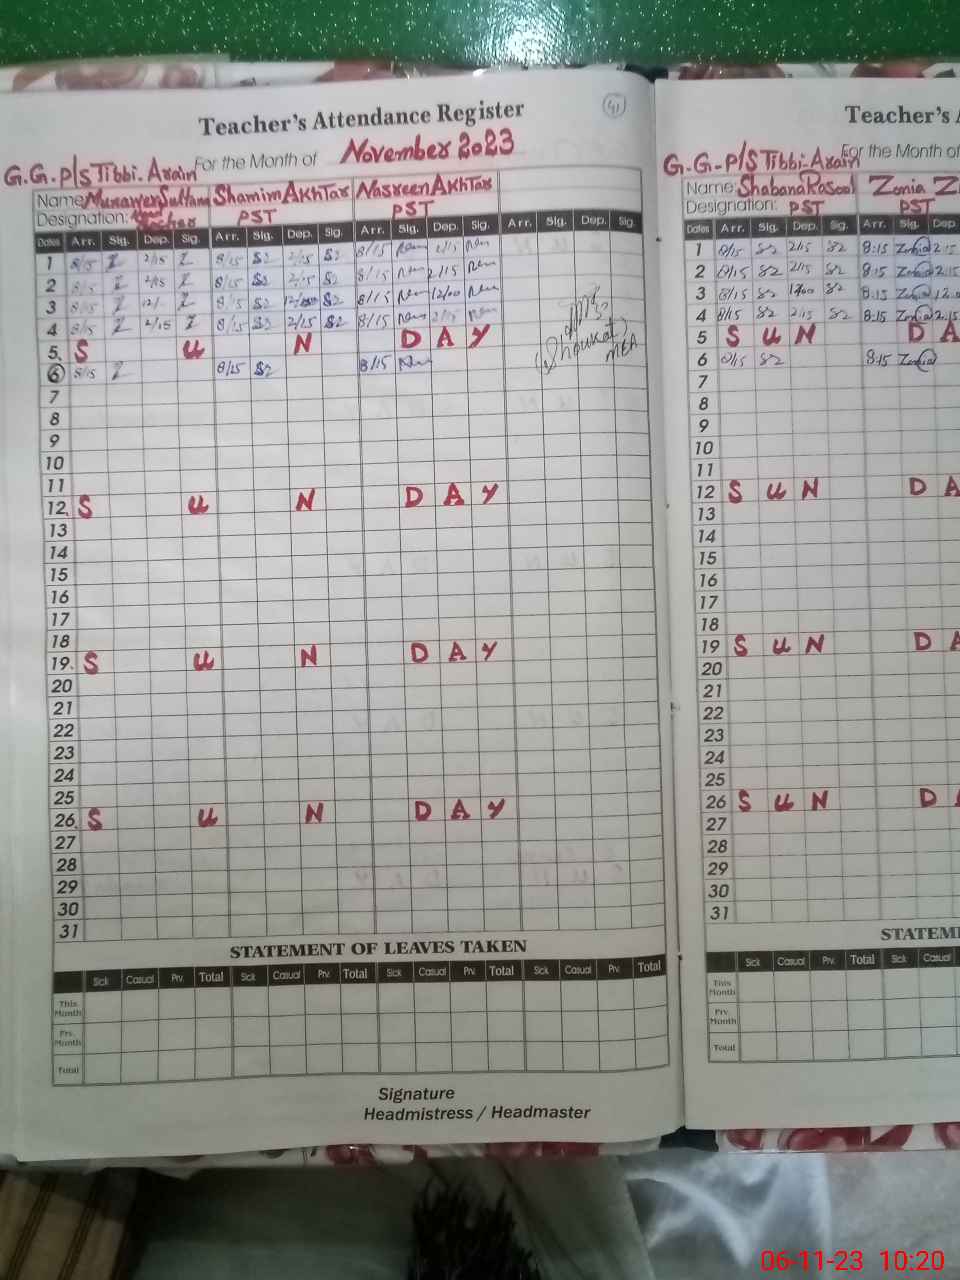 41
Teacher's Attendance Register
G.G.P/S Tibbi-Arain For the Month of November 2023
Name: Munawer Sultana Shamim Akhtar Nasreen Akhtar
Designation: PST PST
Dates Arr. Sig. Dep. Sig. Arr. Sig. Dep. Sig. Arr. Sig. Dep. Sig. Arr. Sig. Dep. Sig.
1 8/15 2/15 8/15 2/15 8/15 2/15
2 8/15 2/15 8/15 2/15 8/15 2/15
3 8/15 12/ 8/15 8/15 12/00
4 8/15 2/15 8/15 2/15 8/15 2/15
5. S U N D A Y
6 8/15 8/15 8/15
(Shoukat)
MEA
7
8
9
10
11
12. S U N D A Y
13
14
15
16
17
18
19. S U N D A Y
20
21
22
23
24
25
26. S U N D A Y
27
28
29
30
31
STATEMENT OF LEAVES TAKEN
Sick Casual Prv. Total Sick Casual Prv. Total Sick Casual Prv. Total Sick Casual Prv. Total
This Month
Prv. Month
Total
Signature
Headmistress / Headmaster
Teacher's
G.G-P/S Tibbi-Arain For the Month of
Name: Shabana Rasool Zonia
Designation: PST PST
Dates Arr. Sig. Dep. Sig. Arr. Sig. Dep
1 8/15 2/15 8:15 Zonia 2:15
2 8/15 2/15 8:15 Zonia 2:15
3 8/15 1200 8:15 Zonia 12:0
4 8/15 2/15 8:15 Zonia 2:15
5 S U N D A
6 8/15 8:15 Zonia
7
8
9
10
11
12 S U N D A
13
14
15
16
17
18
19 S U N D A
20
21
22
23
24
25
26 S U N D
27
28
29
30
31
STATEM
Sick Casual Prv. Total Sick Casual
This Month
Prv. Month
Total
06-11-23 10:20